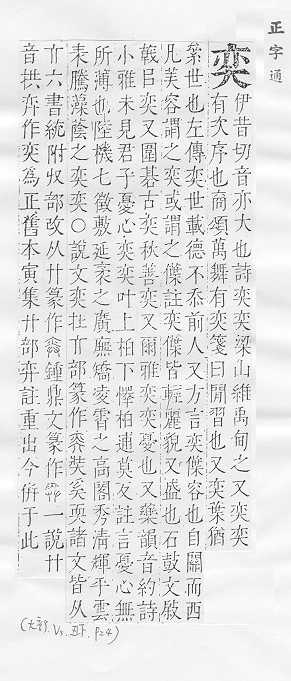 正字通
奕 伊昔切音亦大也詩奕奕梁山維禹甸之又奕奕
有次序也商頌萬舞有奕箋曰閒習也又奕葉猶
絫世也左傳奕世載德不忝前人又方言奕僷容也自關而西
凡美容謂之奕或謂之僷註奕僷皆輕麗貌又盛也石鼓文
奕又圍碁古奕秋善奕又爾雅奕奕憂也又樂韻音約詩
小雅未見君子憂心奕奕叶上柏下懌柏連莫友註言憂心無
所薄也陸機七徵敷延袤之廣廡矯凌霄之高閣秀清輝乎雲
表騰藻蔭之奕奕〇說文奕在丌部篆作奕奘奚耎諸文皆从
丌六書統附収部改从廾篆作鐘鼎文篆作一說廾
音拱弈作奕為正舊本寅集廾部弈註重出今倂于此
(大部. Vs. 丑下. P24)